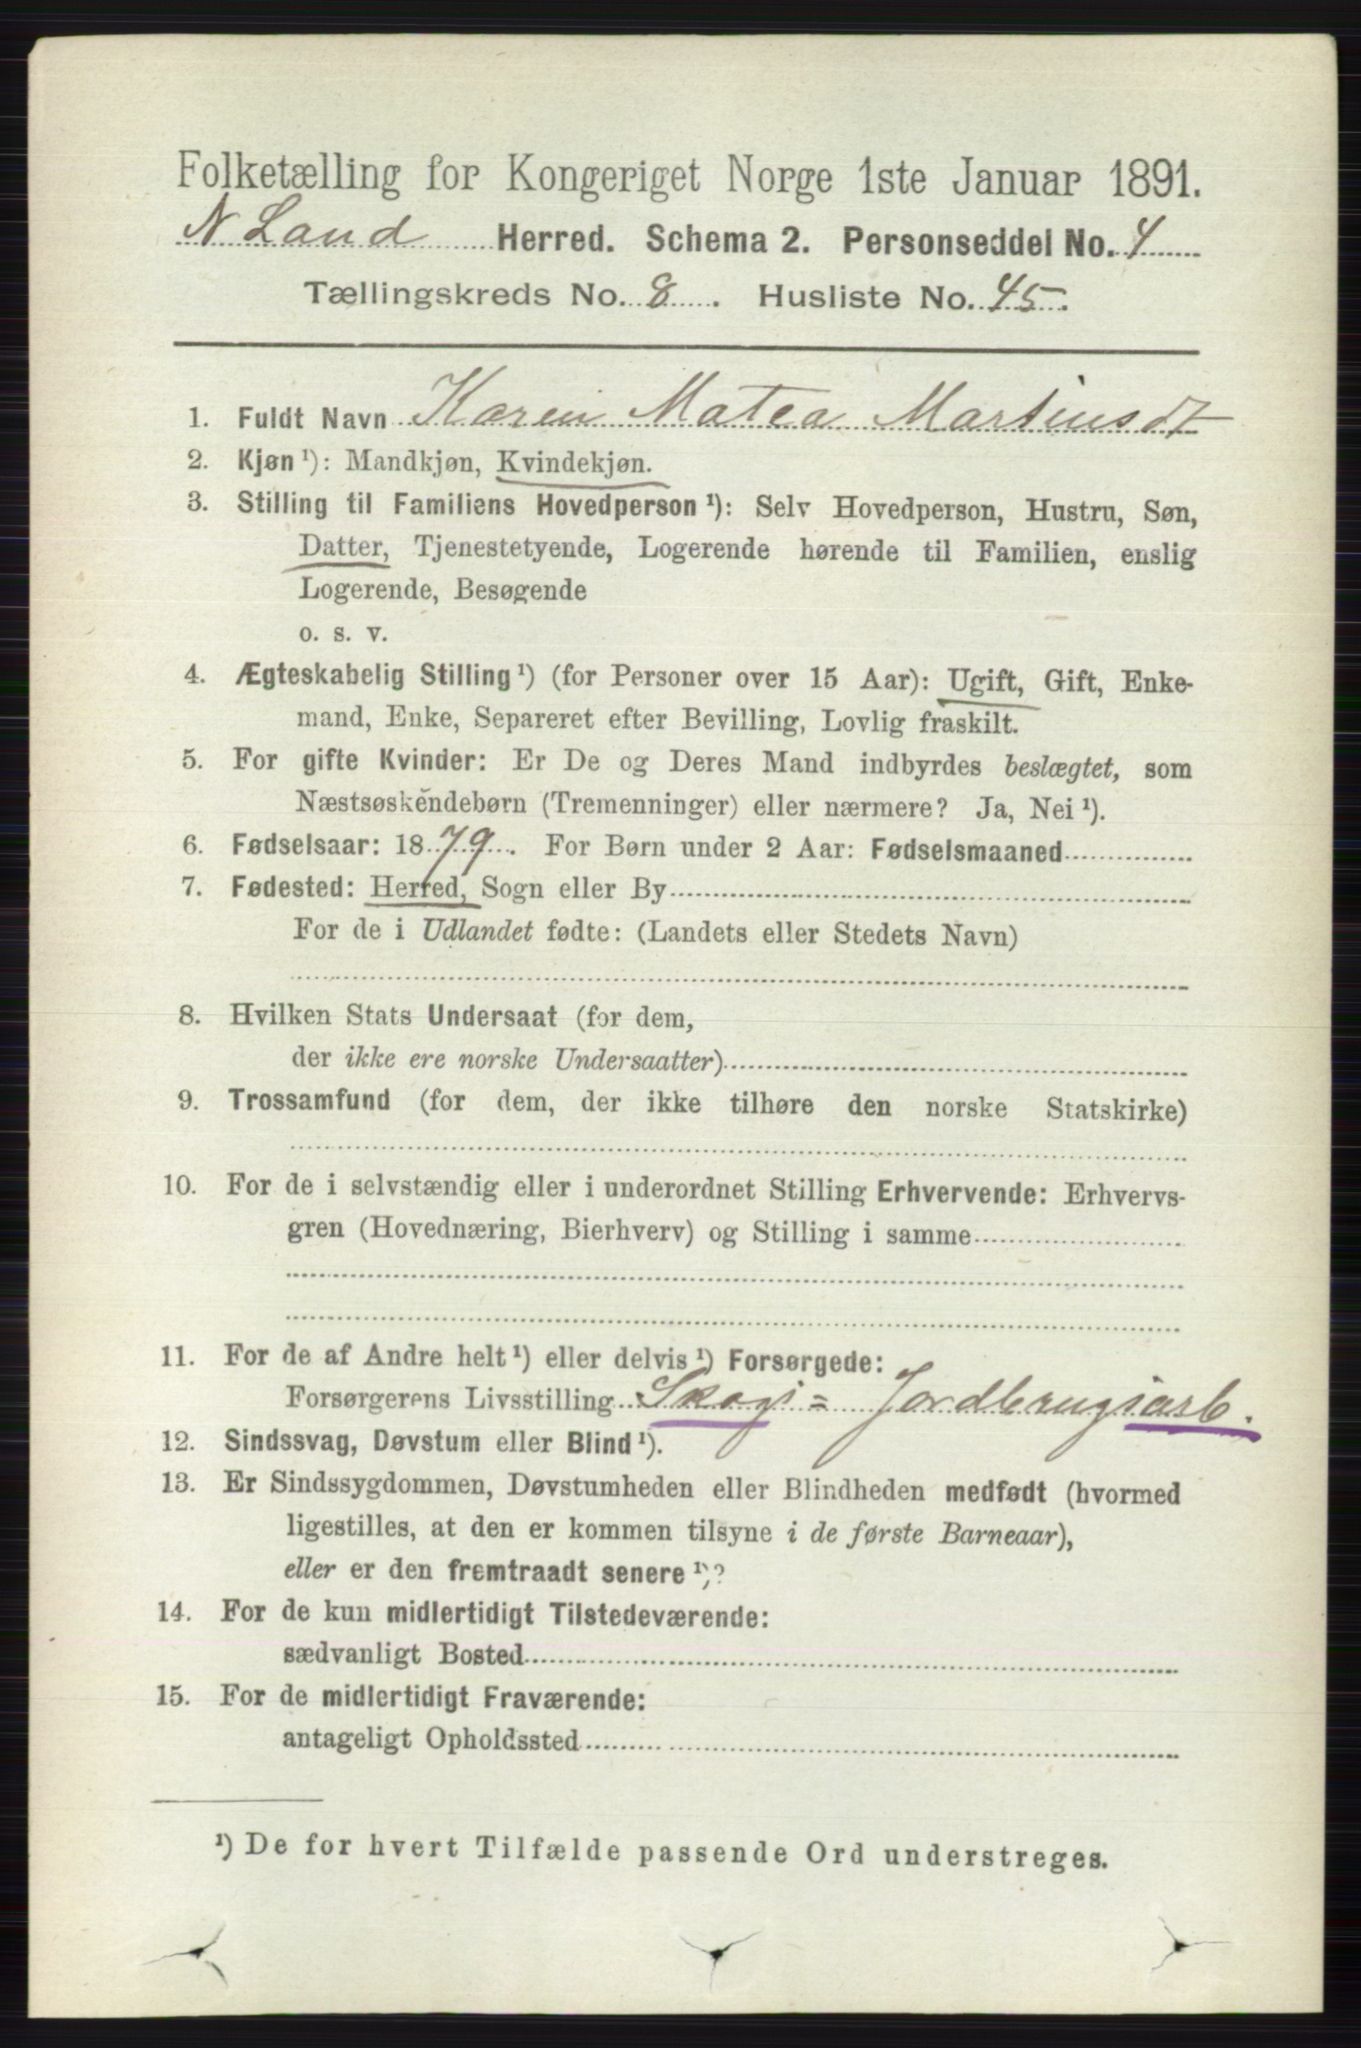 Folketælling for Kongeriget Norge 1ste Januar 1891.
N Land Herred. Schema 2. Personseddel No. 4
Tællingskreds No. 8. Husliste No. 45.
1. Fuldt Navn Karen Matea Martinsdt
2. Kjøn ¹): Mandkjøn, Kvindekjøn.
3. Stilling til Familiens Hovedperson ¹): Selv Hovedperson, Hustru, Søn,
Datter, Tjenestetyende, Logerende hørende til Familien, enslig
Logerende, Besøgende
o. s. v.
4. Ægteskabelig Stilling ¹) (for Personer over 15 Aar): Ugift, Gift, Enke-
mand, Enke, Separeret efter Bevilling, Lovlig fraskilt.
5. For gifte Kvinder: Er De og Deres Mand indbyrdes beslægtet, som
Næstsøskendebørn (Tremenninger) eller nærmere? Ja, Nei ¹).
6. Fødselsaar: 1879. For Børn under 2 Aar: Fødselsmaaned
7. Fødested: Herred, Sogn eller By
For de i Udlandet fødte: (Landets eller Stedets Navn)
8. Hvilken Stats Undersaat (for dem,
der ikke ere norske Undersaatter)
9. Trossamfund (for dem, der ikke tilhøre den norske Statskirke)
10. For de i selvstændig eller i underordnet Stilling Erhvervende: Erhvervs-
gren (Hovednæring, Bierhverv) og Stilling i samme
11. For de af Andre helt ¹) eller delvis ¹) Forsørgede:
Forsørgerens Livsstilling Skogs= Jordbrugsarb.
12. Sindssvag, Døvstum eller Blind ¹).
13. Er Sindssygdommen, Døvstumheden eller Blindheden medfødt (hvormed
ligestilles, at den er kommen tilsyne i de første Barneaar),
eller er den fremtraadt senere ¹)?
14. For de kun midlertidigt Tilstedeværende:
sædvanligt Bosted
15. For de midlertidigt Fraværende:
antageligt Opholdssted
¹) De for hvert Tilfælde passende Ord understreges.